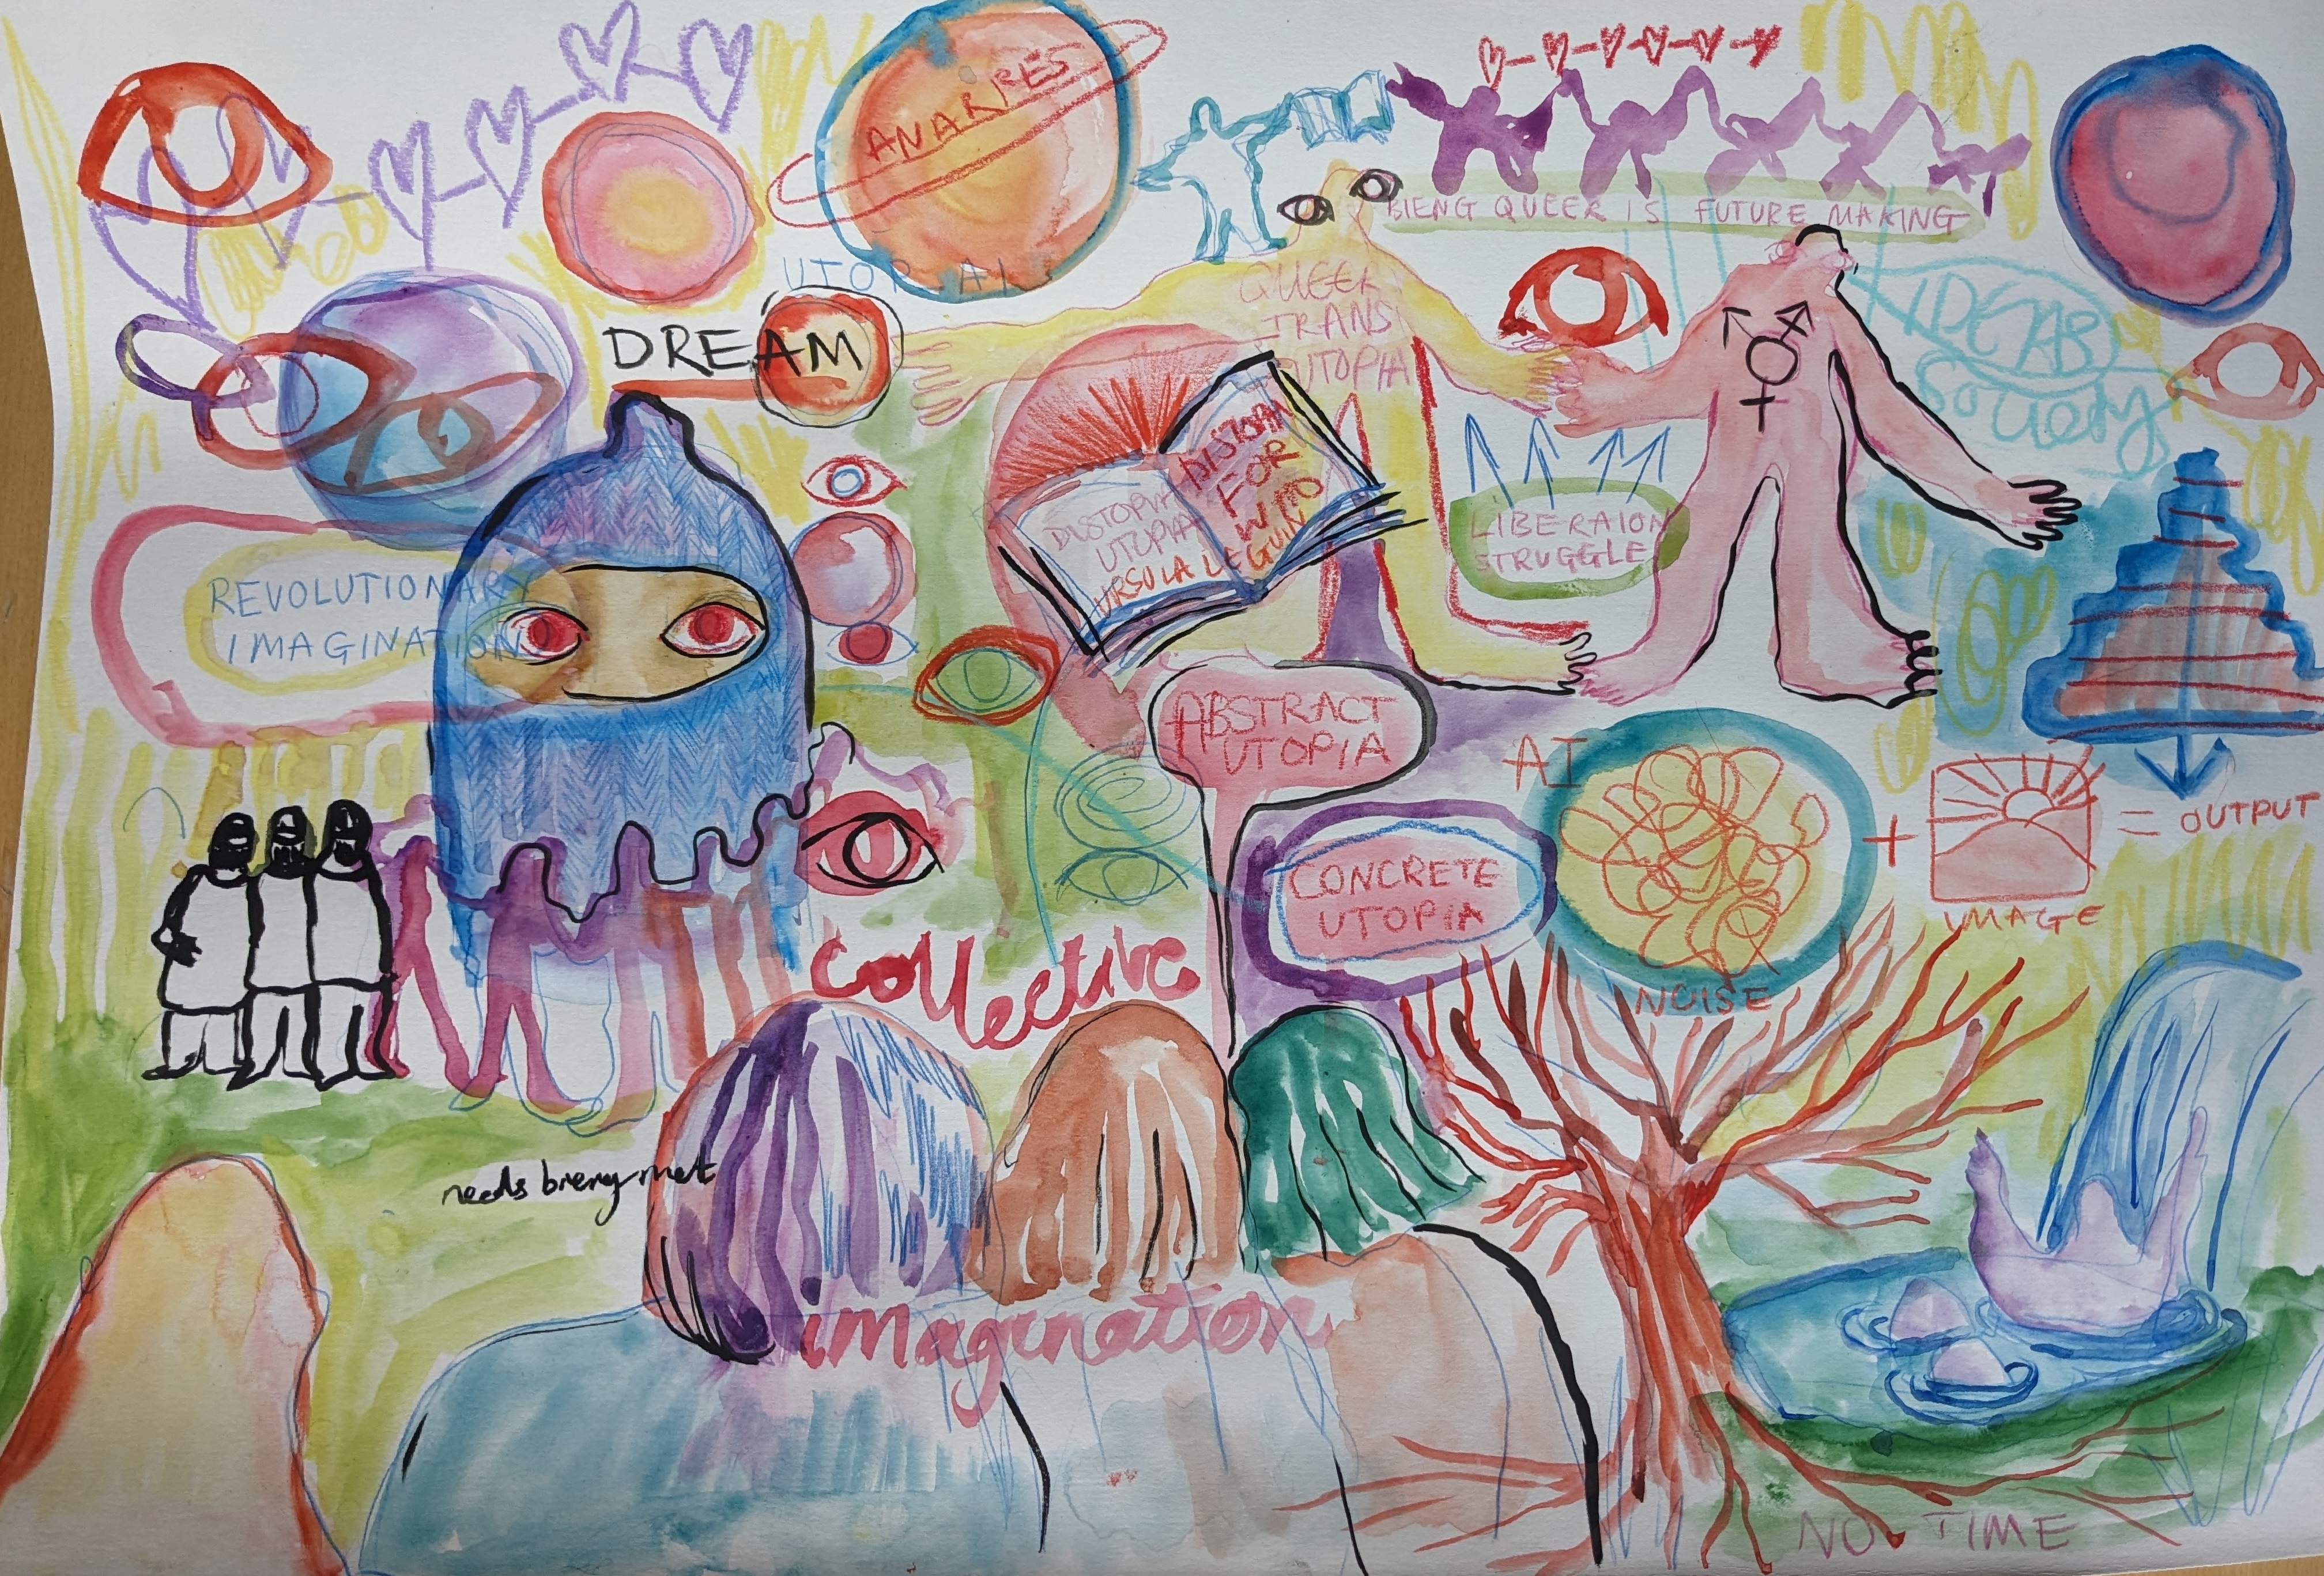 ANARRES
BIENG QUEER IS FUTURE MAKING
UTOPAI
DREAM
QUEER
TRANS
UTOPIA
IDEAS
Society
DISTOPIA
UTOPIA
URSULA LE GUIN
DISTOPIA
FOR
LIBERAION
STRUGGLE
REVOLUTIONARY
IMAGINATION
ABSTRACT
UTOPIA
AI
+
= OUTPUT
CONCRETE
UTOPIA
IMAGE
NOISE
collective
needs bieng met
imagination
NO TIME